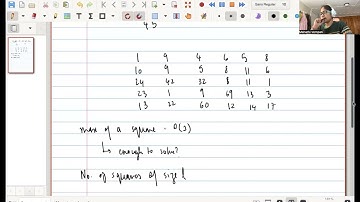 45
1 9 4 6 5 8
10 9 5 8 11 6
24 42 32 8 11 1
23 1 9 69 13 3
13 22 60 12 14 17
max of a square - O(1)
↳ enough to solve?
No. of squares of size l